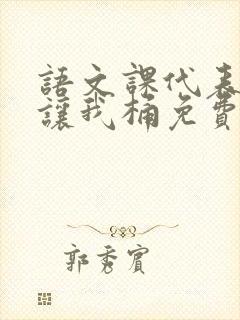 語文課代表
讓我桶免費
郭秀賓